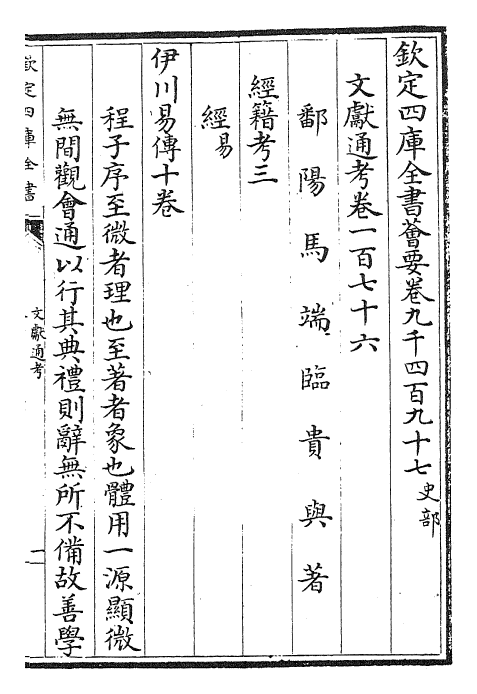 欽定四庫全書薈要卷九千四百九十七 史部
文獻通考卷一百七十六
鄱陽馬端臨貴與著
經籍考三
經易
伊川易傳十卷
程子序至微者理也至著者象也體用一源顯微
無間觀會通以行其典禮則辭無所不備故善學
欽定四庫全書
文獻通考
一